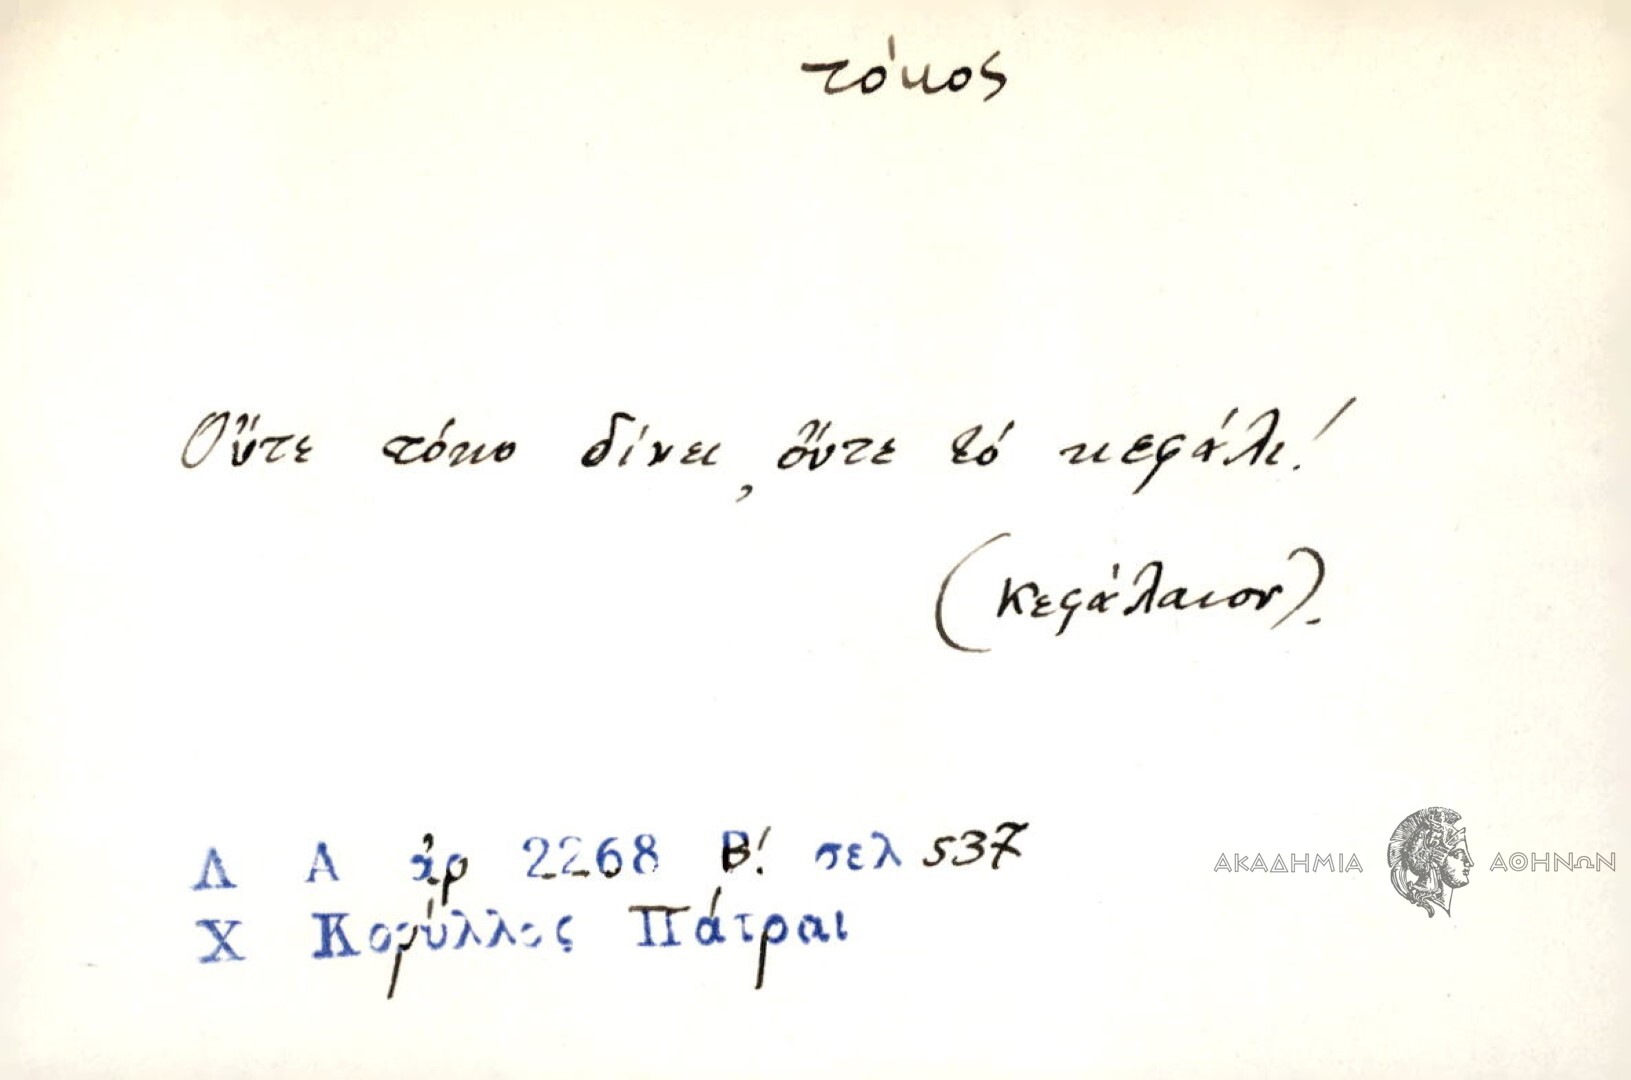 τόκος
Οὔτε τόκο δίνει, οὔτε τό κεφάλι!
(Κεφάλαιον).
Λ Α ἀρ 2268 Β! σελ 537
Χ Κορύλλος Πάτραι
ΑΚΑΔΗΜΙΑ ΑΘΗΝΩΝ